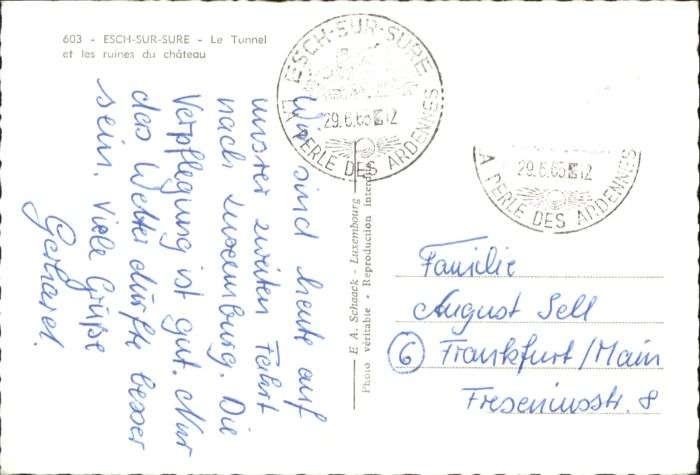 603 - ESCH-SUR-SURE - Le Tunnel
et les ruines du château
ESCH-SUR-SURE
29.6.65 12
LA PERLE DES ARDENNES
29.6.65 12
LA PERLE DES ARDENNES
Wir sind heute auf
unsrer zweiten Fahrt
nach Luxemburg. Die
Verpflegung ist gut. Nur
das Wetter dürfte besser
sein. Viele Grüße
Gerhard.
E. A. Schaack - Luxembourg
Photo véritable • Reproduction Interdite
Familie
August Sell
6 Frankfurt/Main
Freseniusstr. 8